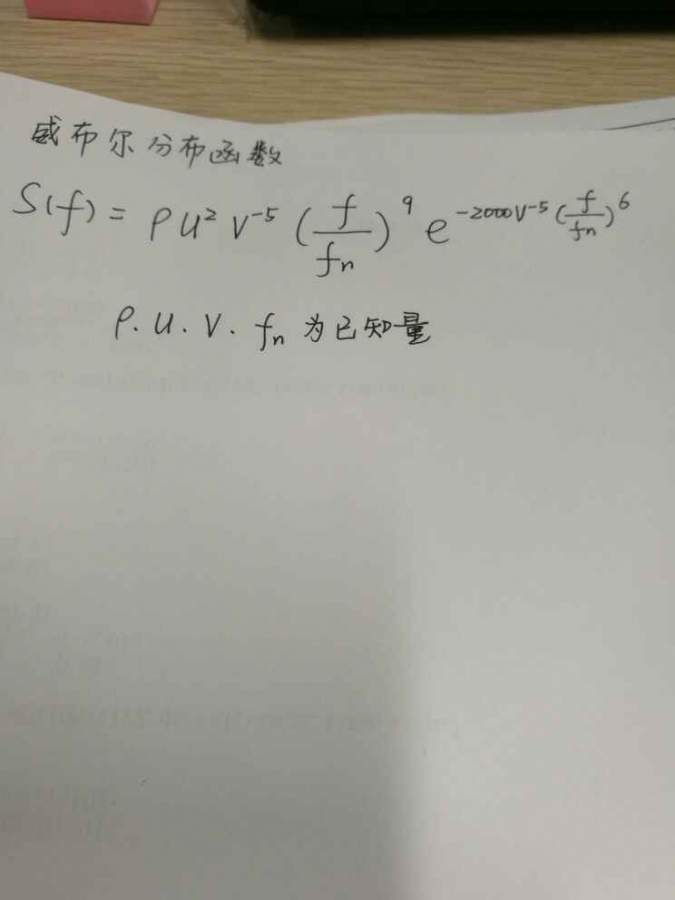 威布尔分布函数
S(f) = ρ u² V⁻⁵ (f/fn)⁹ e^{-2000V⁻⁵ (f/fn)⁶}
ρ. u. V. fn 为已知量